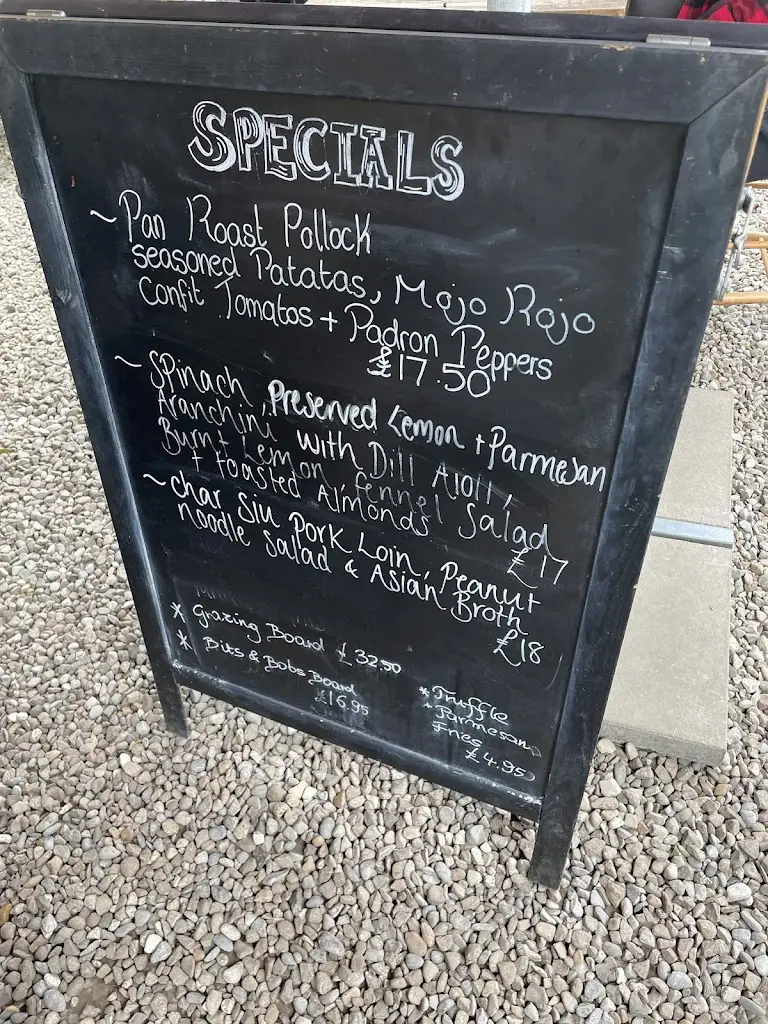 SPECIALS
~ Pan Roast Pollock
seasoned Patatas, Mojo Rojo
Confit Tomatos + Padron Peppers
£17.50
~ Spinach, Preserved Lemon + Parmesan
Aranchini with Dill Aioli,
Burnt Lemon, fennel Salad
+ toasted Almonds £17
~ Char Siu Pork Loin, Peanut
noodle Salad & Asian Broth
£18
* Grazing Board £32.50
* Bits & Bobs Board
£16.95
* Truffle
+ Parmesan
Fries
£4.95